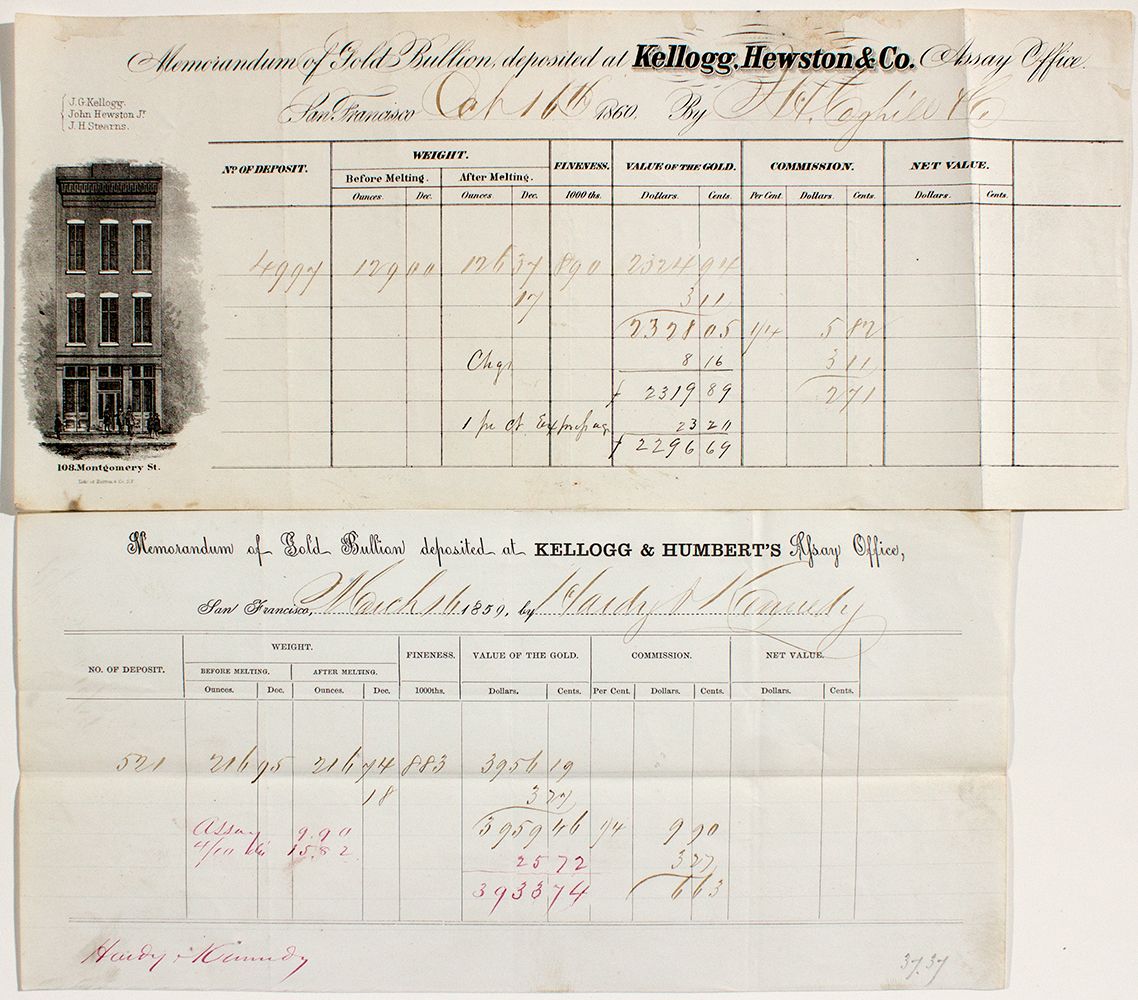 Memorandum of Gold Bullion, deposited at Kellogg, Hewston & Co. Assay Office.
San Francisco Oct 16th 1860. By
J. G. Kellogg.
John Hewston Jr.
J. H. Stearns.
No. OF DEPOSIT. WEIGHT. FINENESS. VALUE OF THE GOLD. COMMISSION. NET VALUE.
Before Melting. After Melting.
Ounces Dec. Ounces Dec. 1000 ths. Dollars. Cents. Per Cent. Dollars. Cents. Dollars. Cents.
4997 129 00 126 37 890 2324 94
17 3 11
2328 05 1/4 5 82
Chgs 8 16 3 11
2319 89 2 71
1 pr ct 23 20
2296 69
108. Montgomery St.
Memorandum of Gold Bullion deposited at KELLOGG & HUMBERT'S Assay Office,
San Francisco, March 16 1859, by Hardy & Kennedy
NO. OF DEPOSIT. WEIGHT. FINENESS. VALUE OF THE GOLD. COMMISSION. NET VALUE.
BEFORE MELTING. AFTER MELTING.
Ounces. Dec. Ounces. Dec. 1000ths. Dollars. Cents. Per Cent. Dollars. Cents. Dollars. Cents.
521 216 95 216 74 883 3956 19
18 3 27
Assay 9.90 3959 46 1/4 9 90
4/10 15.82 25 72 3 27
3933 74 6 63
Hardy & Kennedy
37.37